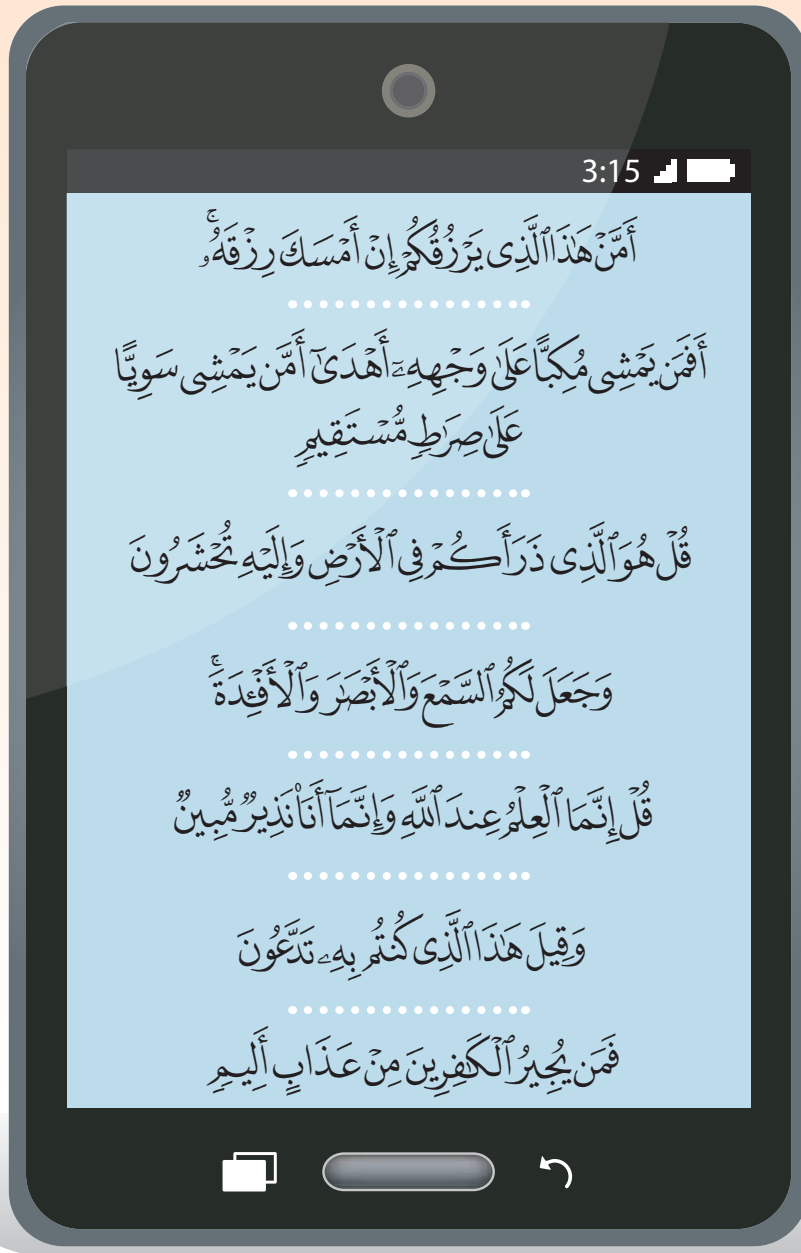 3:15
أَمَّنْ هَٰذَا ٱلَّذِى يَرْزُقُكُمْ إِنْ أَمْسَكَ رِزْقَهُۥ ۚ
أَفَمَن يَمْشِى مُكِبًّا عَلَىٰ وَجْهِهِۦٓ أَهْدَىٰٓ أَمَّن يَمْشِى سَوِيًّا
عَلَىٰ صِرَٰطٍ مُّسْتَقِيمٍ
قُلْ هُوَ ٱلَّذِى ذَرَأَكُمْ فِى ٱلْأَرْضِ وَإِلَيْهِ تُحْشَرُونَ
وَجَعَلَ لَكُمُ ٱلسَّمْعَ وَٱلْأَبْصَٰرَ وَٱلْأَفْـِٔدَةَ ۚ
قُلْ إِنَّمَا ٱلْعِلْمُ عِندَ ٱللَّهِ وَإِنَّمَآ أَنَا۠ نَذِيرٌ مُّبِينٌ
وَقِيلَ هَٰذَا ٱلَّذِى كُنتُم بِهِۦ تَدَّعُونَ
فَمَن يُجِيرُ ٱلْكَٰفِرِينَ مِنْ عَذَابٍ أَلِيمٍ